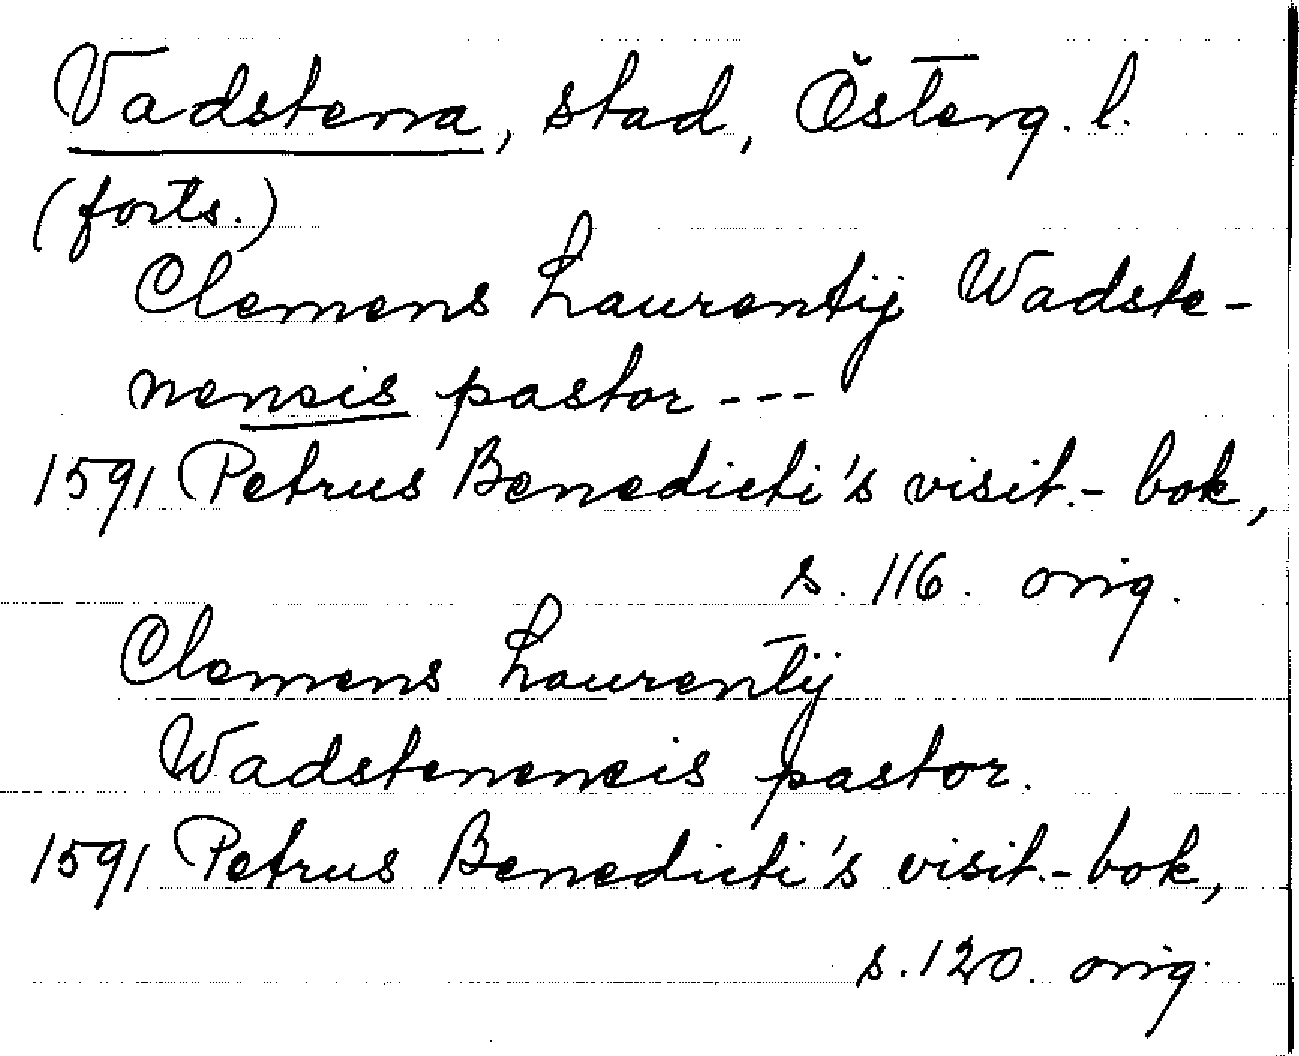 Vadstena, stad, Österg. l.
(forts.)
Clemens Laurentij Wadste-
nensis pastor ---
1591 Petrus Benedicti's visit.- bok,
s. 116. orig.
Clemens Laurentij
Wadstenensis pastor.
1591 Petrus Benedicti's visit.- bok,
s. 120. orig.